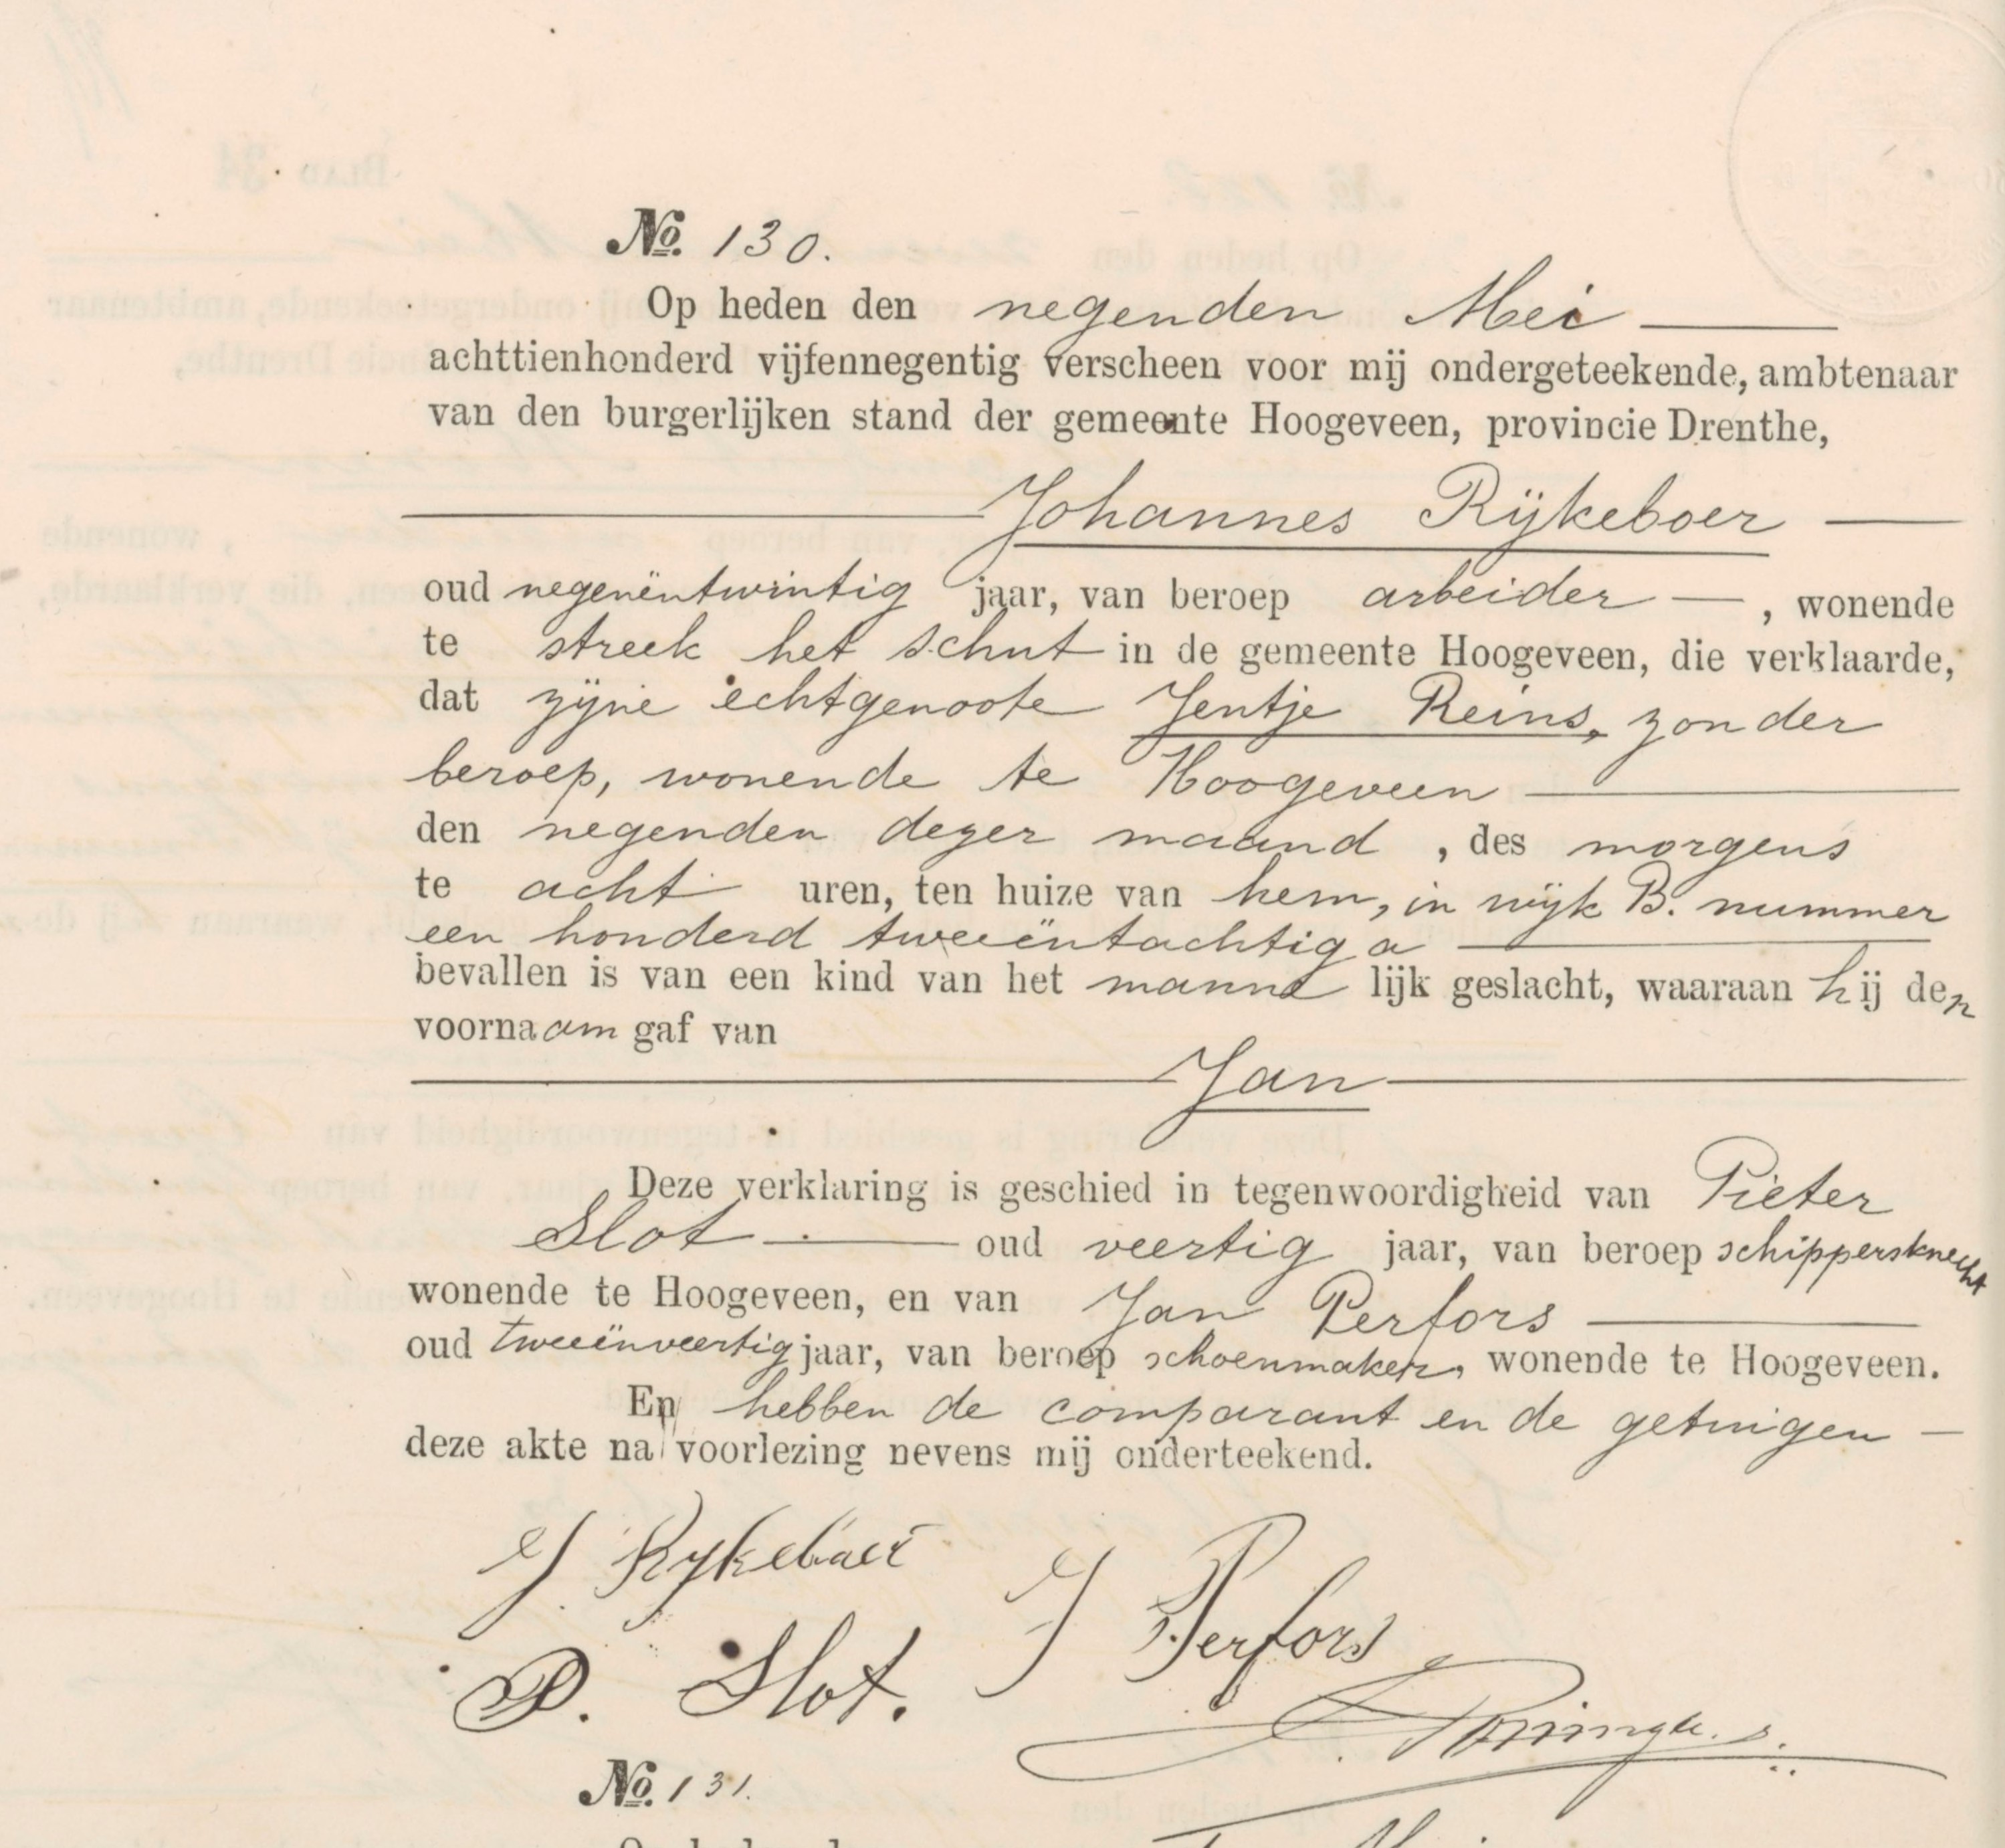 №. 130.
Op heden den negenden Mei
achttienhonderd vijfennegentig verscheen voor mij ondergeteekende, ambtenaar
van den burgerlijken stand der gemeente Hoogeveen, provincie Drenthe,
Johannes Rijkeboer
oud negenëntwintig jaar, van beroep arbeider, wonende
te streek het schut in de gemeente Hoogeveen, die verklaarde,
dat zijne echtgenoote Jentje Reins, zonder
beroep, wonende te Hoogeveen
den negenden dezer maand, des morgens
te acht uren, ten huize van hem, in wijk B. nummer
een honderd tweeëntachtig a
bevallen is van een kind van het manne lijk geslacht, waaraan hij den
voornaam gaf van
Jan
Deze verklaring is geschied in tegenwoordigheid van Pieter
Slot oud veertig jaar, van beroep schippersknecht
wonende te Hoogeveen, en van Jan Perfors
oud tweeënveertig jaar, van beroep schoenmaker, wonende te Hoogeveen.
En hebben de comparant en de getuigen
deze akte na voorlezing nevens mij onderteekend.
J Rykeboer
J Perfors
P. Slot.
№. 131.